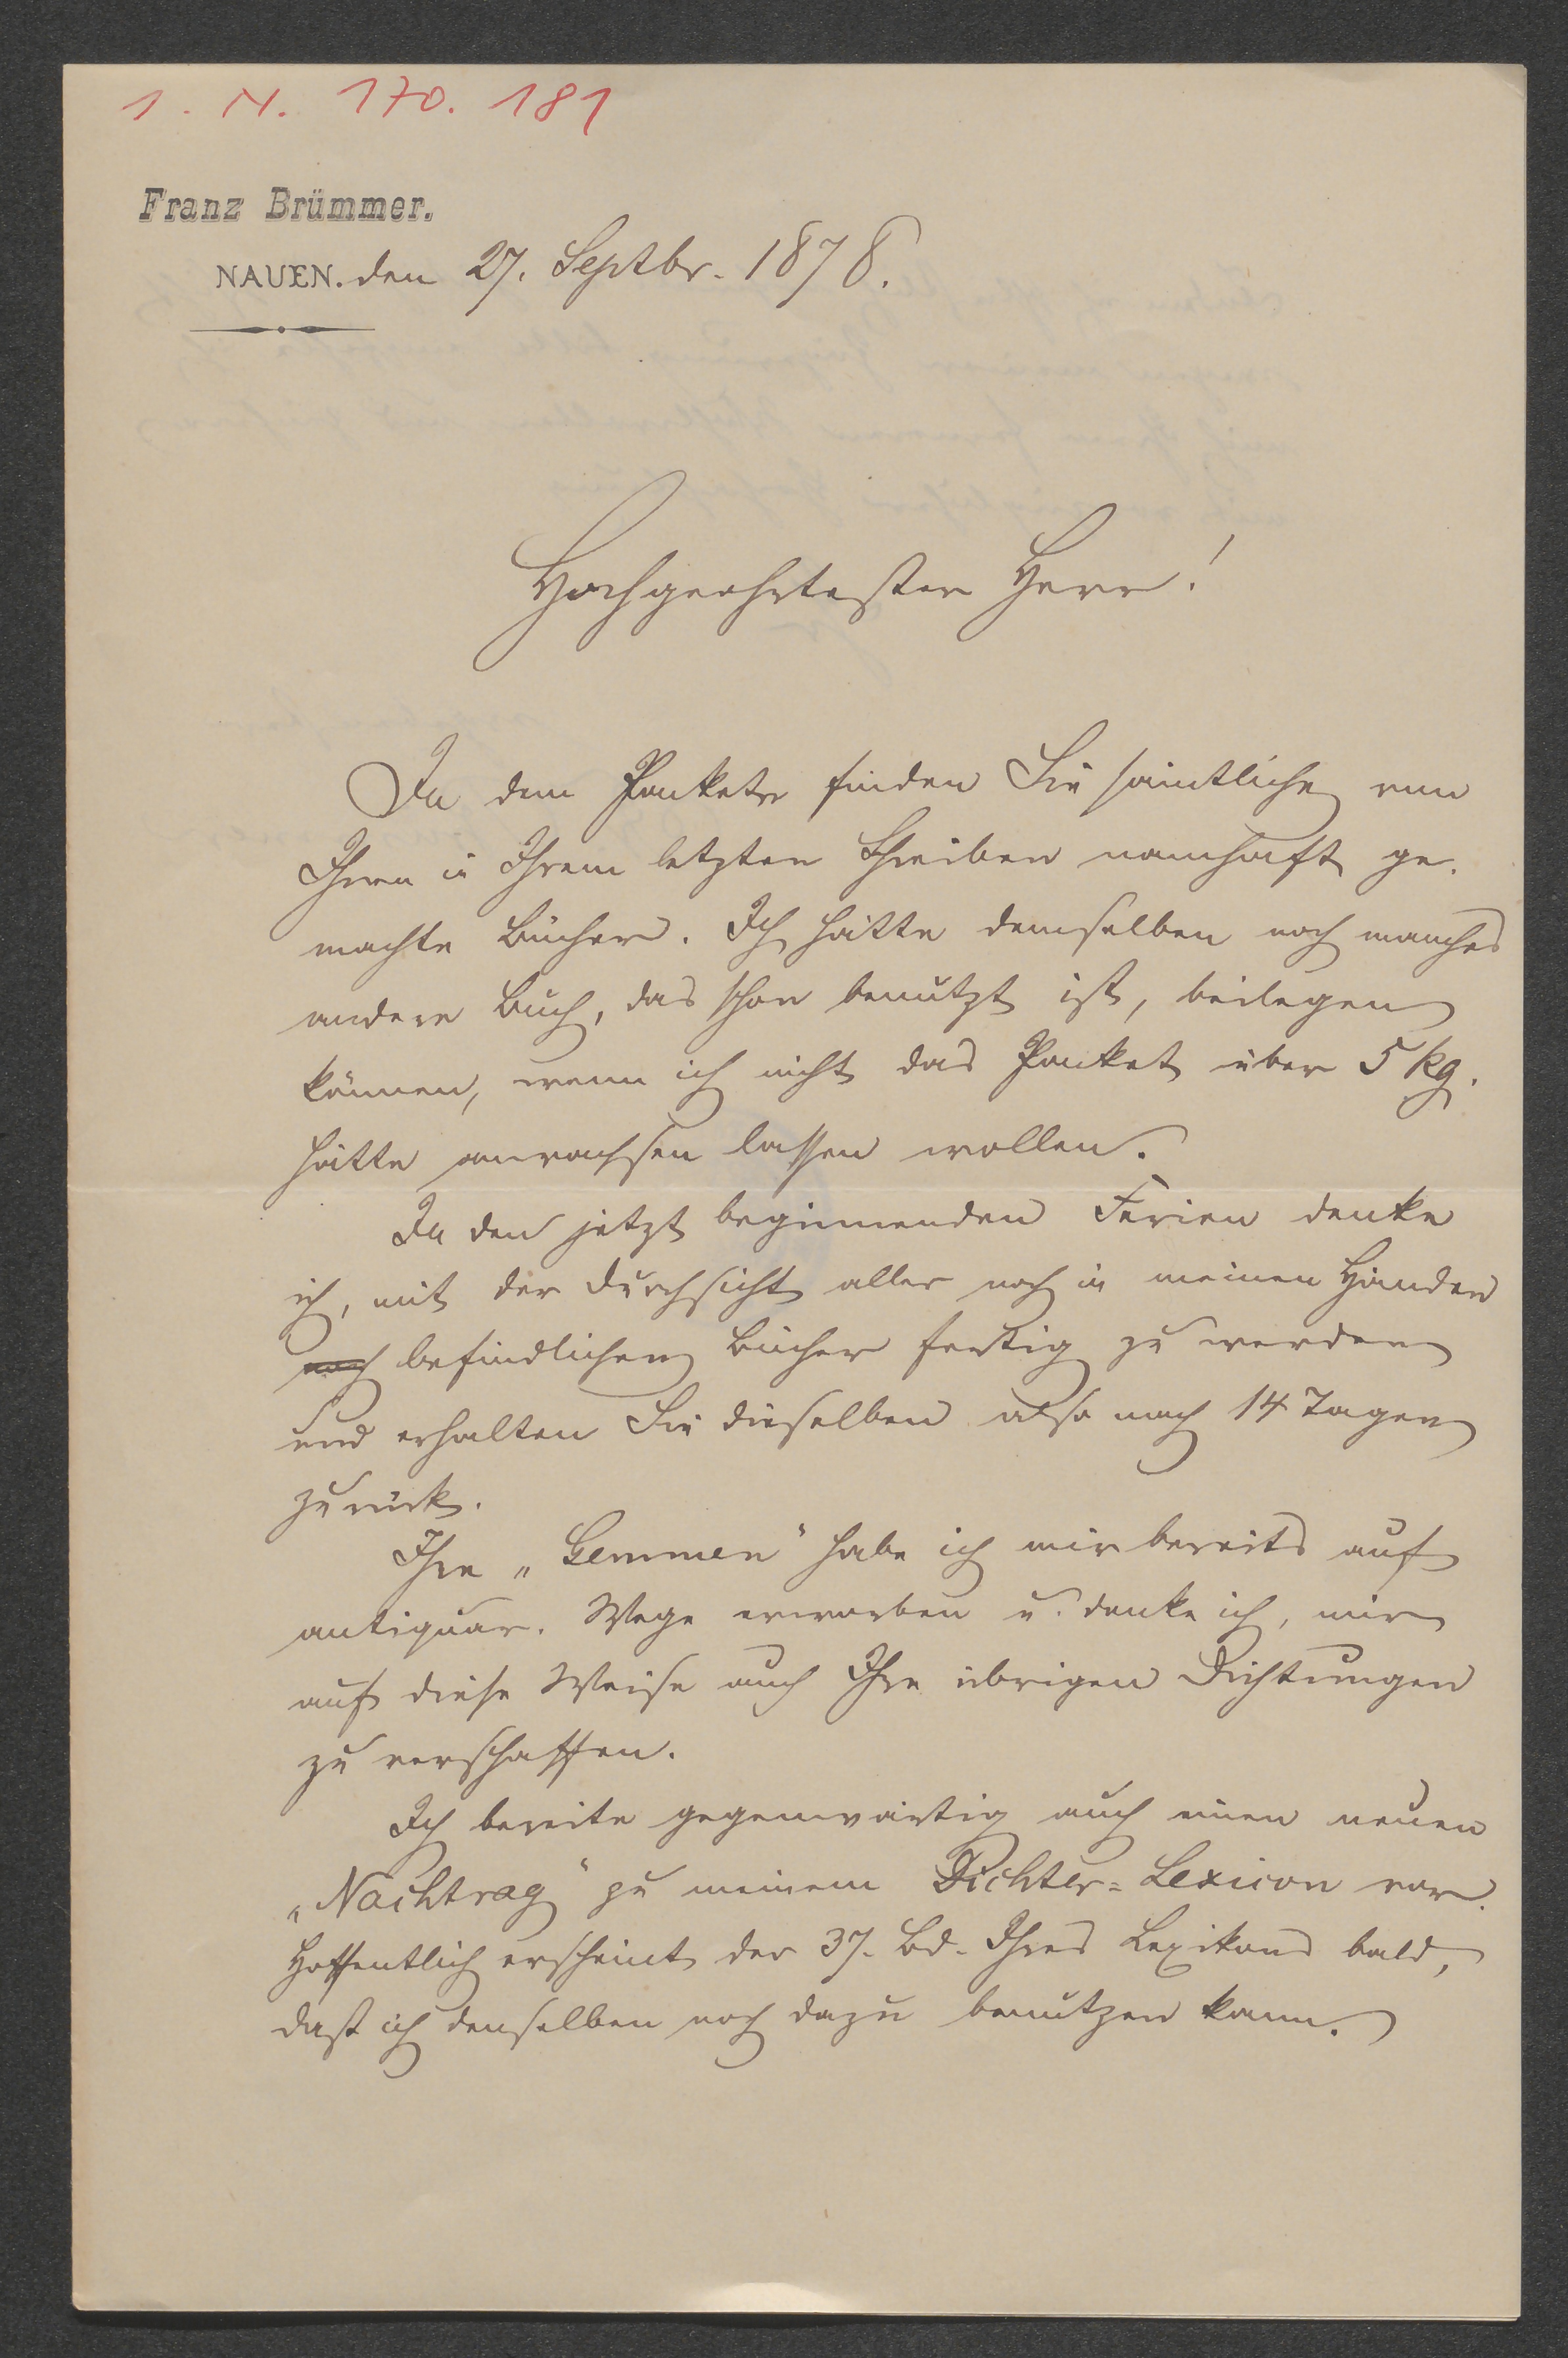 1. N. 170. 181
Franz Brümmer.
NAUEN. den 27. Septbr. 1878.
Hochgeehrtester Herr!
In dem Packete finden Sie sämtliche von
Ihnen in Ihrem letzten Schreiben namhaft ge-
machte Bücher. Ich hätte demselben noch manches
andere Buch, das schon benutzt ist, beilegen
können, wenn ich nicht das Packet über 5 kg.
hätte anwachsen lassen wollen.
In den jetzt beginnenden Ferien denke
ich, mit der Durchsicht aller noch in meinen Händen
noch befindlichen Bücher fertig zu werden
und erhalten Sie dieselben also nach 14 Tagen
zurück.
Ihre „Gemmen" habe ich mir bereits auf
antiquar. Wege erworben u. denke ich, mir
auf diese Weise auch Ihre übrigen Dichtungen
zu verschaffen.
Ich bereite gegenwärtig auch einen neuen
„Nachtrag" zu meinem Dichter-Lexicon vor.
Hoffentlich erscheint der 37. Bd. Ihres Lexikons bald,
daß ich denselben noch dazu benutzen kann.